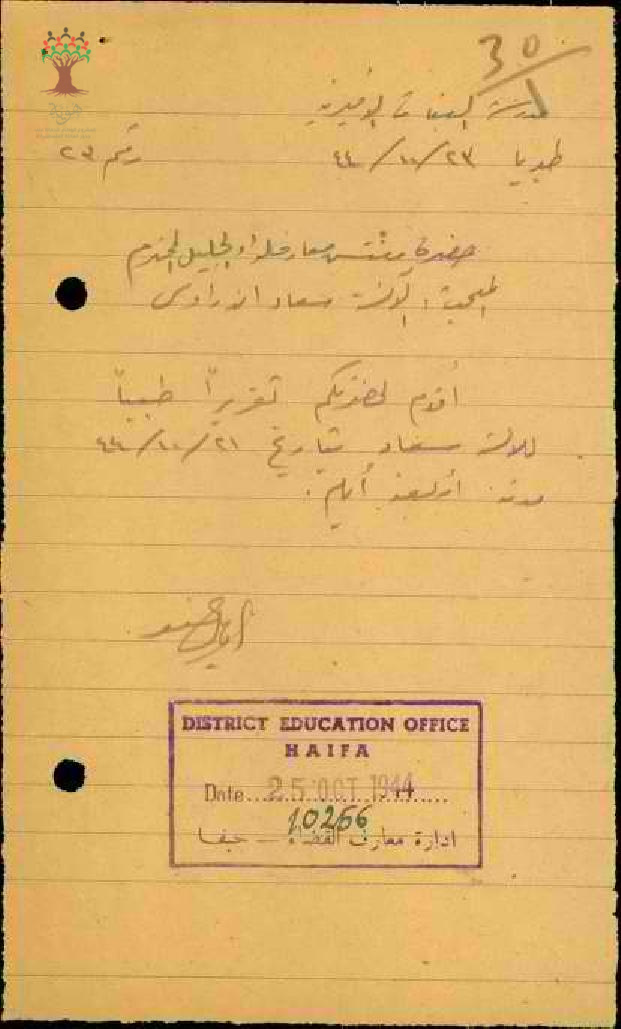 30
مدرسة البنات الأميرية
طبريا ٢٣/١٠/٤٤
رقم ٢٣
حضرة مفتش معارف لواء الجليل المحترم
المبحث: الآنسة سعاد
أقدم لحضرتكم تقريراً طبياً
للآنسة سعاد بتاريخ ٢١/١٠/٤٤
مدته أربعة أيام.
DISTRICT EDUCATION OFFICE
HAIFA
Date 25 OCT 1944
10266
ادارة معارف القضاء – حيفا